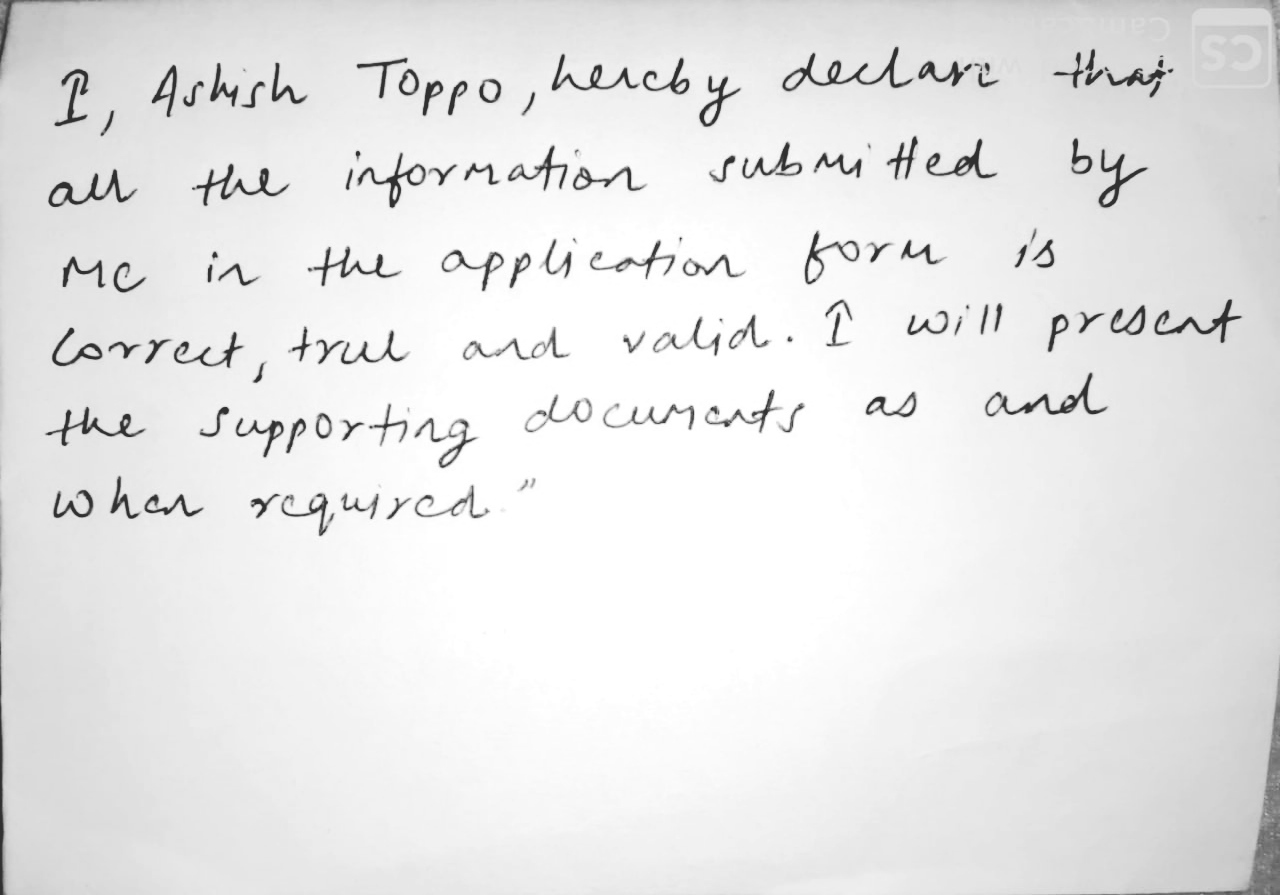 I, Ashish Toppo, hereby declare that
all the information submitted by
me in the application form is
correct, true and valid. I will present
the supporting documents as and
when required."
CS